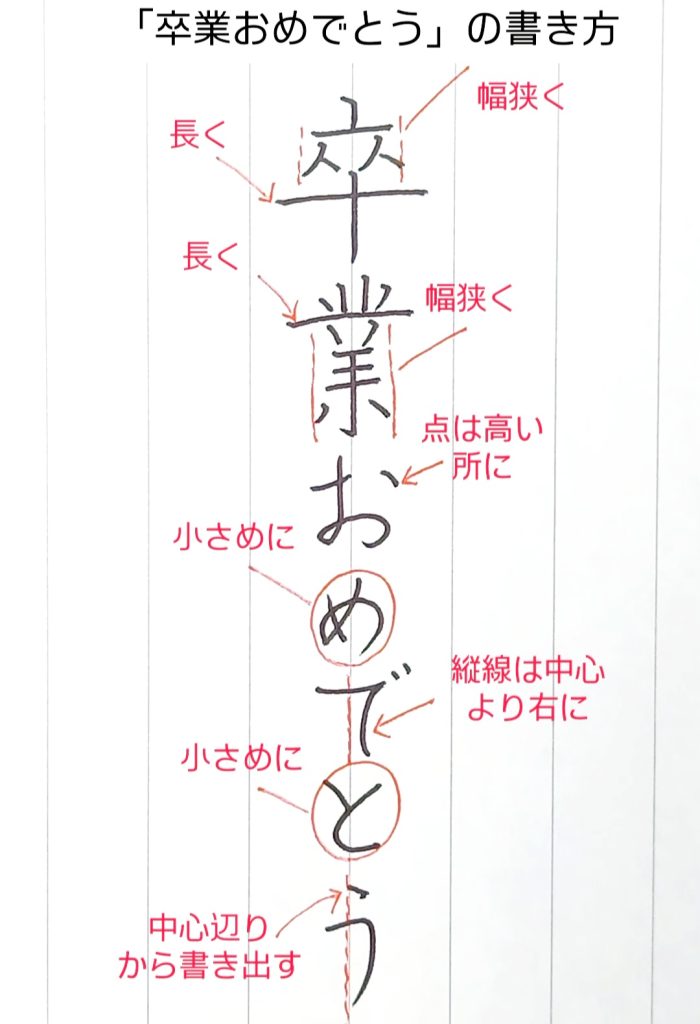 「卒業おめでとう」の書き方
幅狭く
長く
長く
幅狭く
点は高い
所に
小さめに
縦線は中心
より右に
小さめに
中心辺り
から書き出す
卒業おめでとう